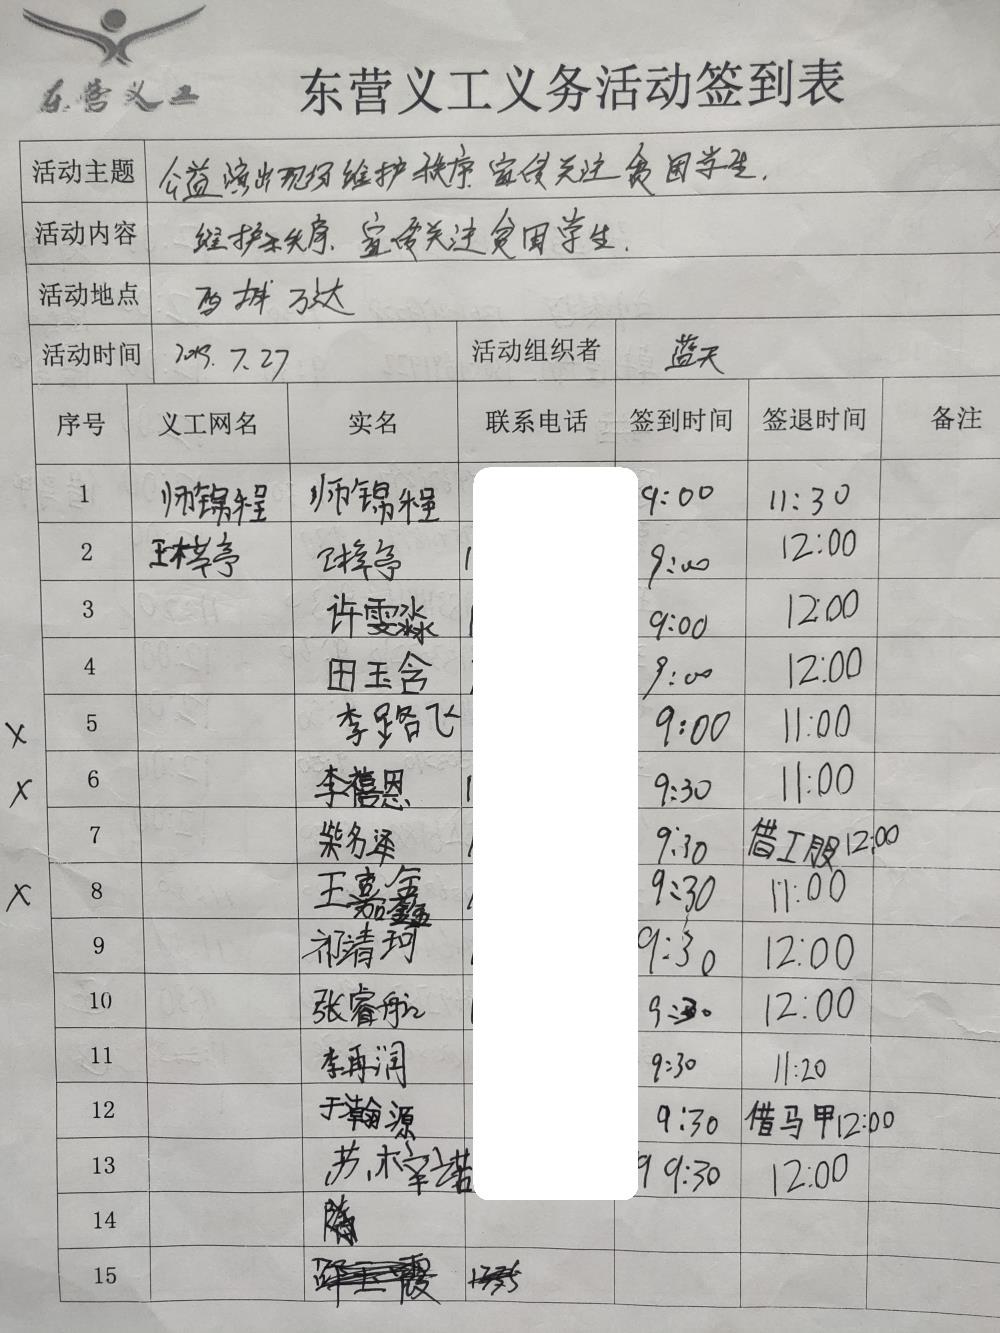 东营义工
东营义工义务活动签到表
活动主题 公益演出现场维护秩序、宣传关注贫困学生.
活动内容 维护秩序、宣传关注贫困学生.
活动地点 西城万达
活动时间 2019.7.27 活动组织者 蓝天
序号 义工网名 实名 联系电话 签到时间 签退时间 备注
1 师锦程 师锦程 9:00 11:30
2 王梓亭 王梓亭 1 9:00 12:00
3 许雯淼 1 9:00 12:00
4 田玉含 9:00 12:00
X 5 李路飞 9:00 11:00
X 6 李禧恩 1 9:30 11:00
7 柴名泽 9:30 借工服12:00
X 8 王嘉鑫 9:30 11:00
9 祁清珂 9:30 12:00
10 张睿航 9:30 12:00
11 李再润 9:30 11:20
12 于瀚源 9:30 借马甲12:00
13 苏梓诺 9 9:30 12:00
14
15